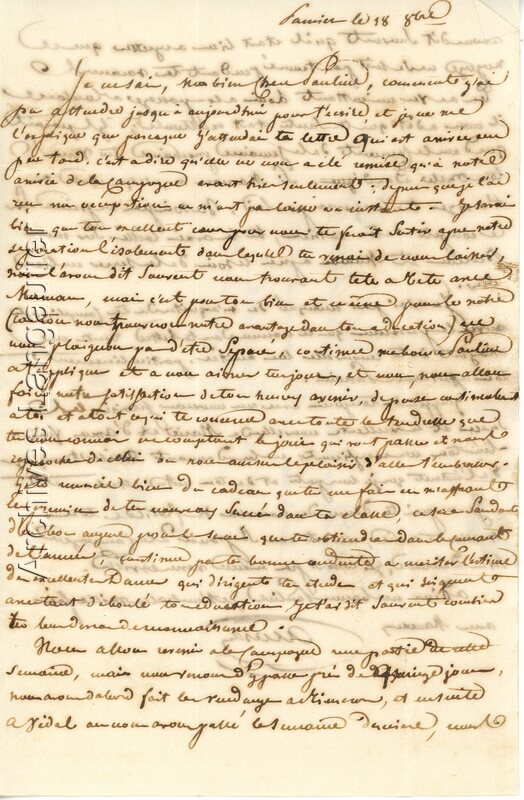 Pamiers le 18 8bre
Je ne sai, ma bien chère Pauline, comment j'ai
pu attendre jusqu'à aujourd'hui pour t'écrire, et je ne me
l'explique que parceque j'attendai ta lettre qui est arrivée un
peu tard. c'est a dire qu'elle ne nous a été remise qu'à notre
arrivée de la Campagne avant hier seulement. depuis que je l'ai
reçu ma ne m'ont pas laissé un instant. Je savai
bien que ton excellent cœur pour nous te ferait sentir que notre
separation l'isolement dans lequel tu venai de nous laisser,
nous l'avons dit souvent nous trouvant tete a tete avec
Maman, mai c'est pour ton bien et même pour le notre
(car nous trouverons notre avantage dans ton education) ne
nous plaignons pas d'être separé, continue ma bonne Pauline
a t'appliquer et a nous aimer toujours, et nous, nous allons
faire notre satisfaction de ton heureux avenir, de penser continuellement
a toi et a tout ce qui te concerne avec toute la tendresse que
tu nous connai en comptant les jours qui sont passé et nous
rapproche de celui ou nous aurons le plaisir d'aller t'embrasser.
Je te remercie bien du cadeau que tu me fais en m'assurant
la de tes nouveaux succès dans ta classe, cela sans doute
de bon augure pour le succès que tu obtiendra dans le courant
de l'année, continue par ta bonne conduite a meriter l'estime
de excellentes Dames qui dirigent tes etudes et qui soignent
avec tant de bonté ton education. Je t'ai dit souvent combien
tu leur devai de reconnaissance.
Nous allons revenir a la Campagne une partie de cette
semaine, mais nous venons d'y passer près de quinze jours,
nous avons d'abord fait les vendanges a , et ensuite
a Videl ou nous avons passé la semaine dernière, nous
Archives Hangaulier